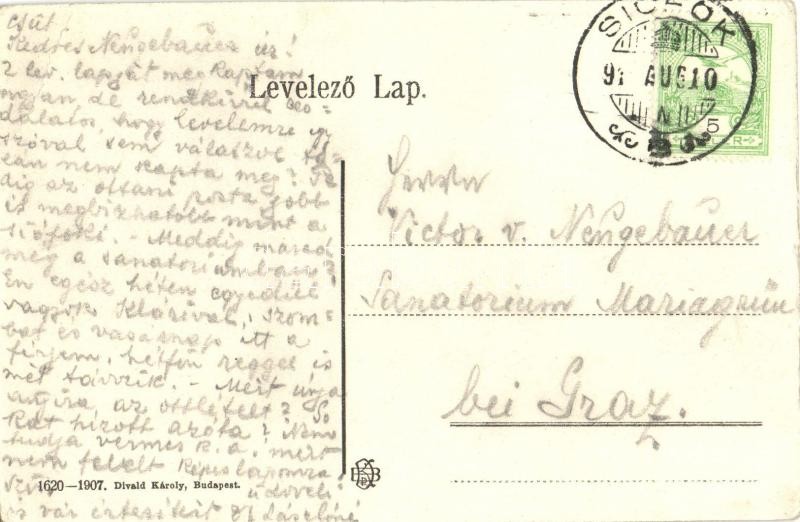 csüt
Kedves Neugebauer úr!
2 lev. lapját megkaptam
ugyan, de rendkívül cso-
dálatos, hogy levelemre egy
szóval sem válaszol ta-
lán nem kapta meg? Pe-
dig az ottani posta jobb
is megbizhatóbb mint a
siófoki. - Meddig marad
még a sanatoriumban?
Én egész héten egyedül
vagyok Klárival, szom-
bat és vasárnap itt a
férjem, hétfőn reggel is
mét távozik. - Mért unja
annyira az ottlétet? So
kat hízott azóta? Nem
tudja vermes k. a. mért
nem felelt képeslapomra
üdvözli
és vár értesítést Lászlóné
Levelező Lap.
SIÓFOK
91 AUG 10
N
5
Herrn
Victor v. Neugebauer
Sanatorium Mariagrün
bei Graz.
1620—1907. Divald Károly, Budapest.